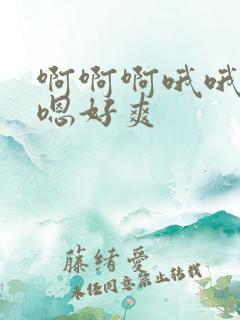 啊啊啊哦哦
嗯好爽
藤绪愛
未经同意禁止转载